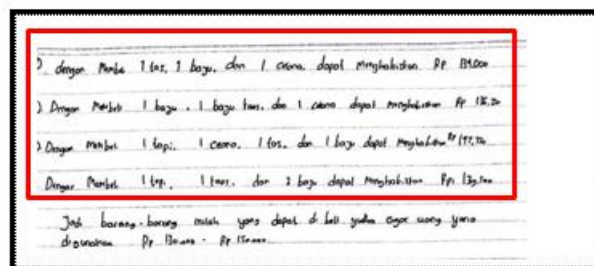 Dengan Membeli 1 tas, 1 baju, dan 1 celana dapat menghabiskan Rp
Dengan Membeli 1 baju, 1 baju kaos, dan 1 celana dapat menghabiskan Rp
Dengan Membeli 1 topi, 1 celana, 1 tas, dan 1 baju dapat menghabiskan Rp
Dengan Membeli 1 topi, 1 kaos, dan 2 baju dapat menghabiskan Rp
Jadi barang-barang inilah yang dapat di beli yudha agar uang yang
digunakan Rp 130.000 - Rp 150.000